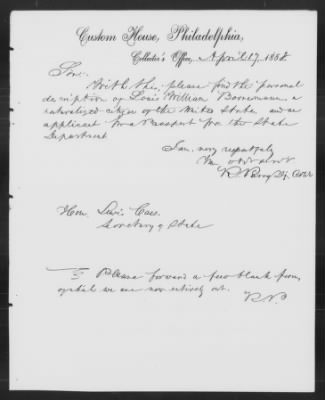 Custom House, Philadelphia,
Collector's Office, April 17, 1858
Sir:
With this, please find the personal
description of Louis William Bornemann, a
naturalized citizen of the United States and an
applicant for a Passport from the State
Department
I am, very respectfully
R
Hon. Lewis Cass.
Secretary of State
Please forward a few blank forms,
as we are now entirely out.
R.P.